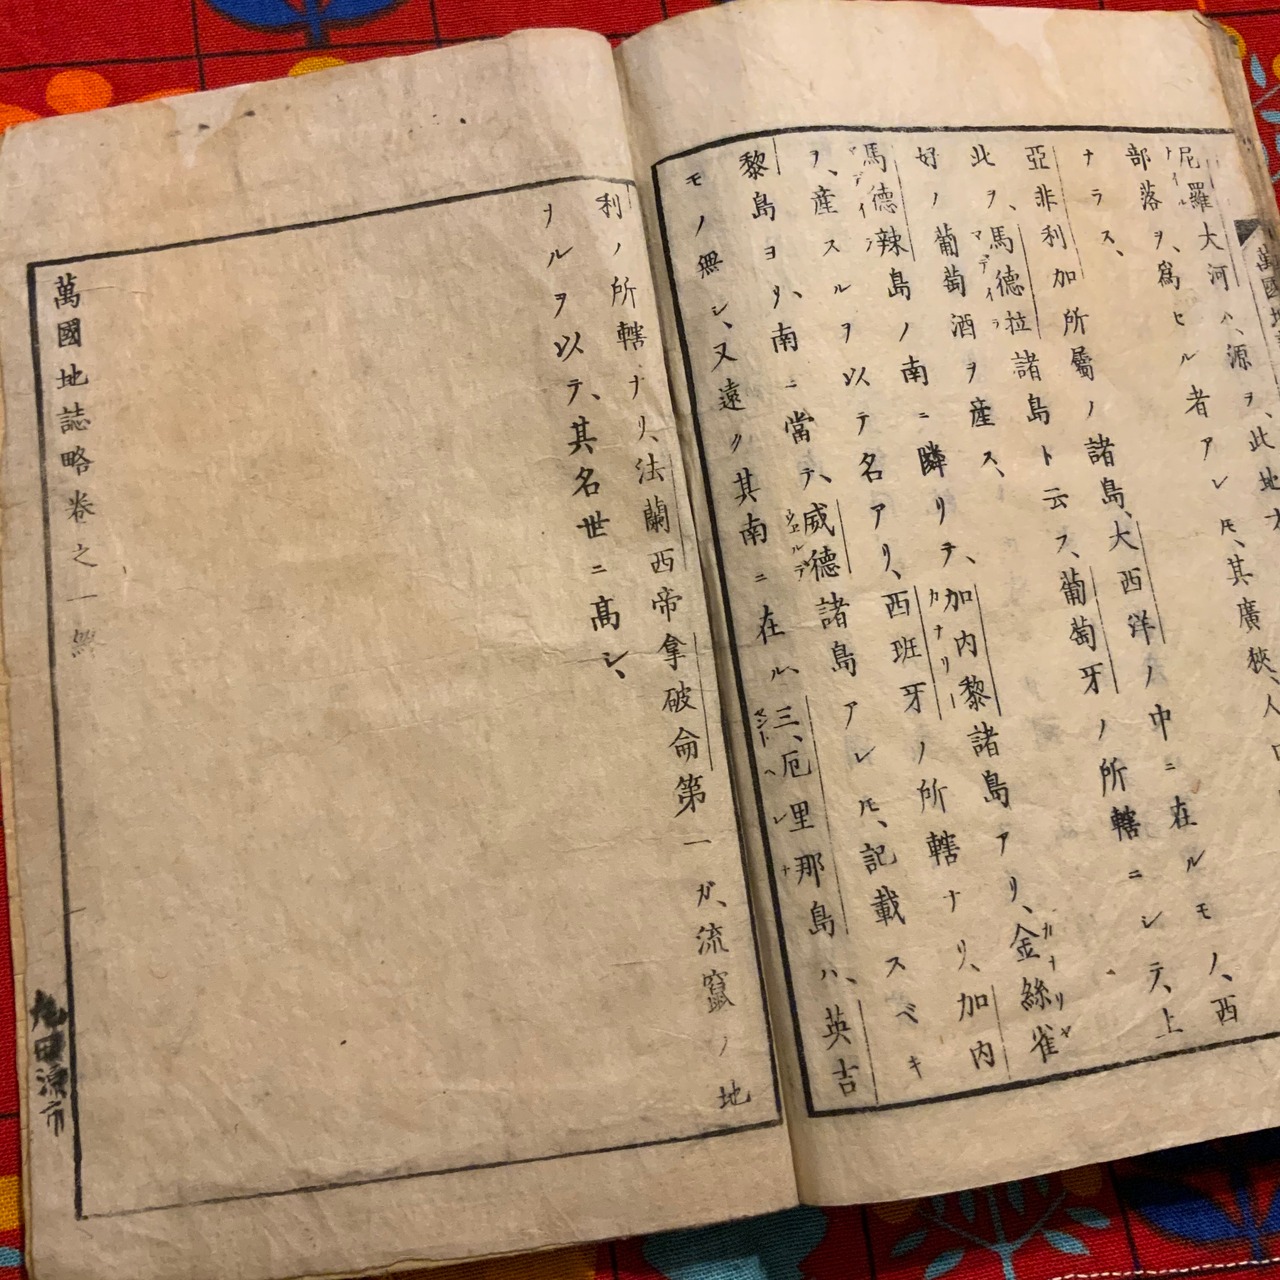 萬國地
尼羅大河ハ、源ヲ、此地
ナイル
部落ヲ、爲セル者アレ𪜈、其廣狹、人口
ナラス、
亞非利加所屬ノ諸島、大西洋ノ中ニ在ルモノ、西
此ヲ、馬德拉諸島ト云フ、葡萄牙ノ所轄ニシテ、上
マデイラ
好ノ葡萄酒ヲ產ス、
馬德辣島ノ南ニ隣リテ、加内黎諸島アリ、金絲雀
マデイラ
カナリー
カナリヤ
ヲ、產スルヲ以テ名アリ、西班牙ノ所轄ナリ、加内
黎島ヨリ、南ニ當テ、威德諸島アレ𪜈、記載スベキ
ウェルデ
モノ無シ、又遠ク其南ニ在ル、三厄里那島ハ、英吉
セントヘレナ
利ノ所轄ナリ、法蘭西帝拿破侖第一ガ、流竄ノ地
ナルヲ以テ、其名世ニ高シ、
萬國地誌略卷之一終